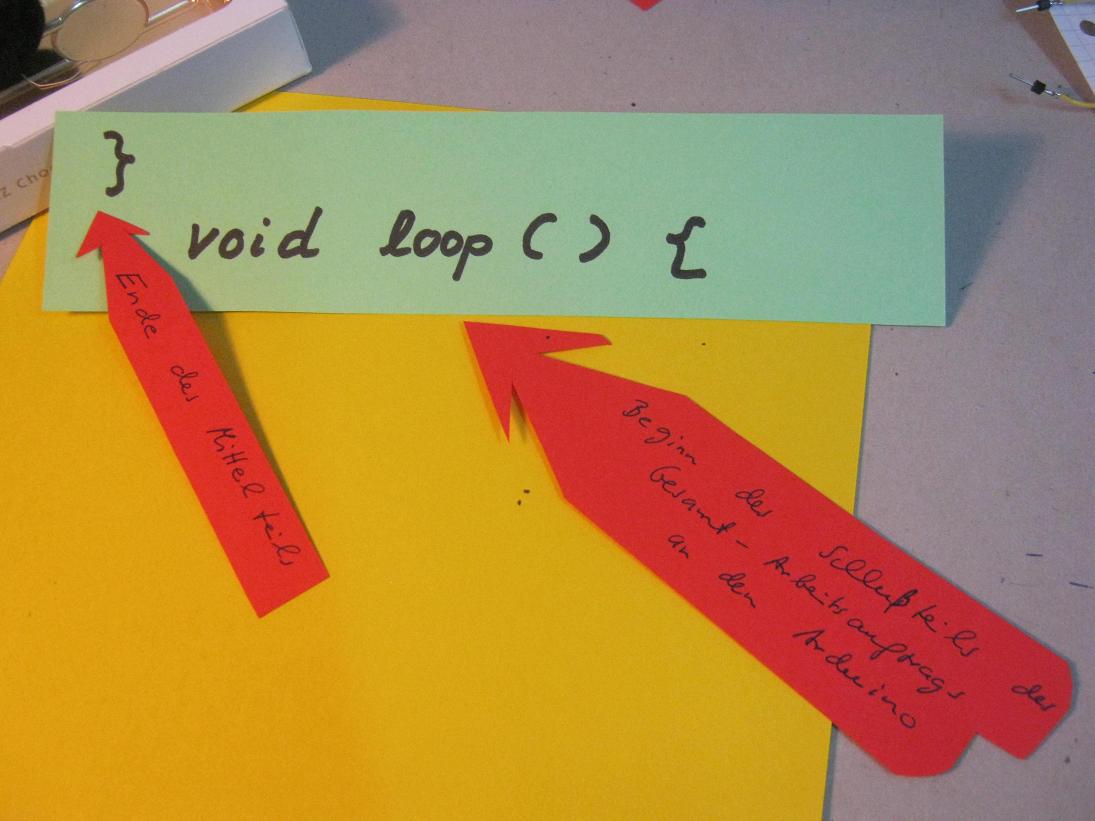 }
void loop () {
Ende des Mittelteils
Beginn des Schlußteils des
Gesamt-Arbeitsauftrags
an den Arduino